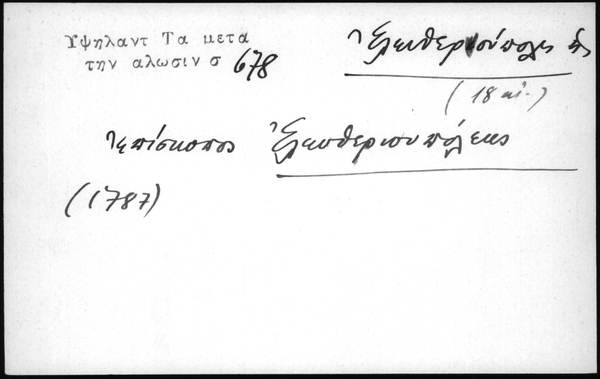 Υψηλαντ Τα μετα
την αλωσιν σ 678
Ἐλευθεριούπολις
(18 αἰ.)
Ἐπίσκοπος Ἐλευθεριουπόλεως
(1787)